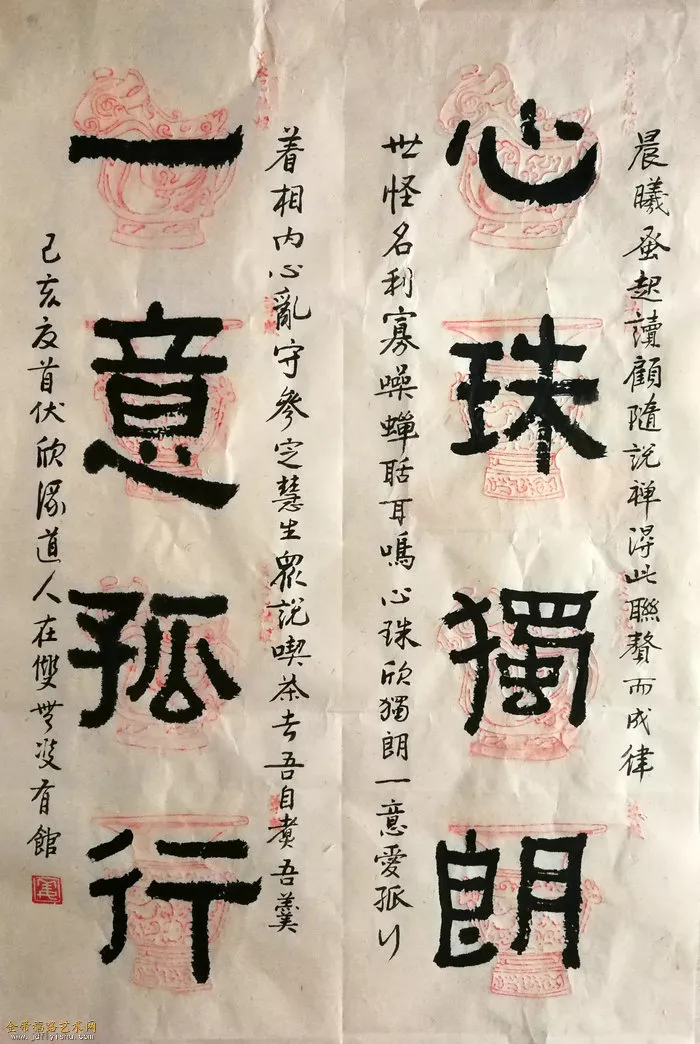 晨曦蚤起讀顧隨説禅得此聯贅而成律
心珠獨朗
世怪名利寡噪蟬聒耳鳴心珠欣獨朗一意愛孤行
着相内心亂守參定慧生眾説喫茶去吾自煮吾羹
一意孤行
己亥首伏欣道人在雙無有館
金带福路艺术网
www.jdflyishu.com